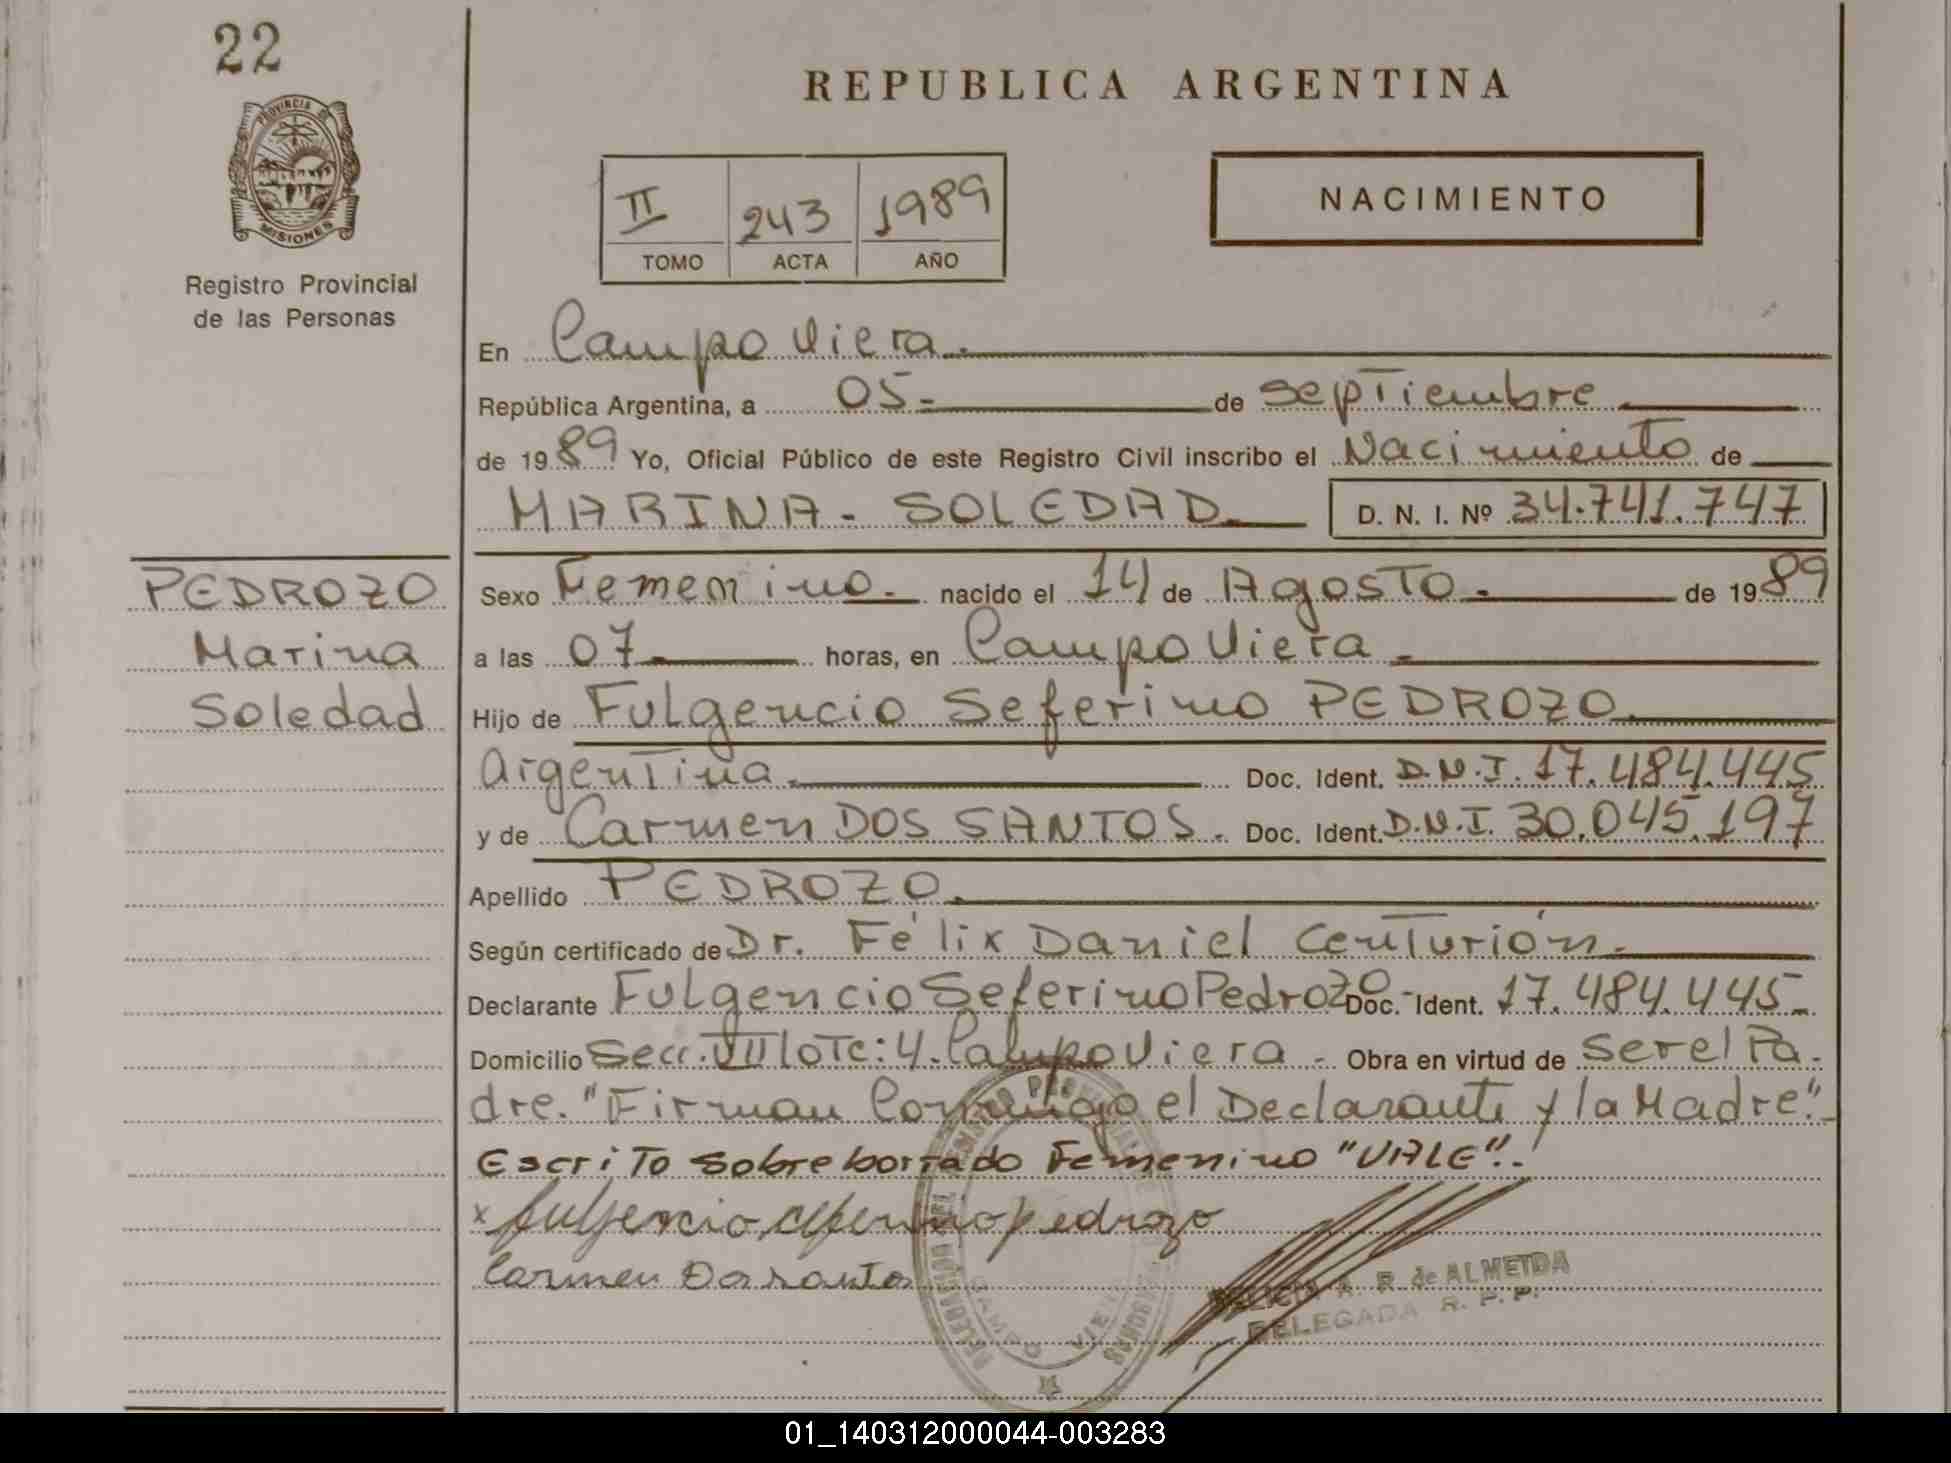 22
PROVINCIA DE
MISIONES
Registro Provincial
de las Personas
PEDROZO
Marina
Soledad
REPUBLICA ARGENTINA
II 243 1989
TOMO ACTA AÑO
NACIMIENTO
En Campo Viera.
República Argentina, a 05- de septiembre
de 1989 Yo, Oficial Público de este Registro Civil inscribo el Nacimiento de
MARINA - SOLEDAD. D. N. I. Nº 34.741.747
Sexo Femenino. nacido el 14 de Agosto. de 1989
a las 07. horas, en Campo Viera.
Hijo de Fulgencio Seferino PEDROZO.
Argentina. Doc. Ident. D.N.I. 17.484.445
y de Carmen DOS SANTOS. Doc. Ident. D.N.I. 30.045.197
Apellido PEDROZO.
Según certificado de Dr. Félix Daniel Centurión.
Declarante Fulgencio Seferino Pedrozo - Doc. Ident. 17.484.445-
Domicilio Secc. VII lote: 4. Campo Viera. Obra en virtud de ser el Pa-
dre. "Firman Conmigo el Declarante y la Madre".-
Escrito sobre borrado Femenino "VALE".-
x fulgencio seferino pedrozo
Carmen Dos santos
A. R. de ALMEIDA
DELEGADA R. P. P.
CAMPO VIERA
01_140312000044-003283